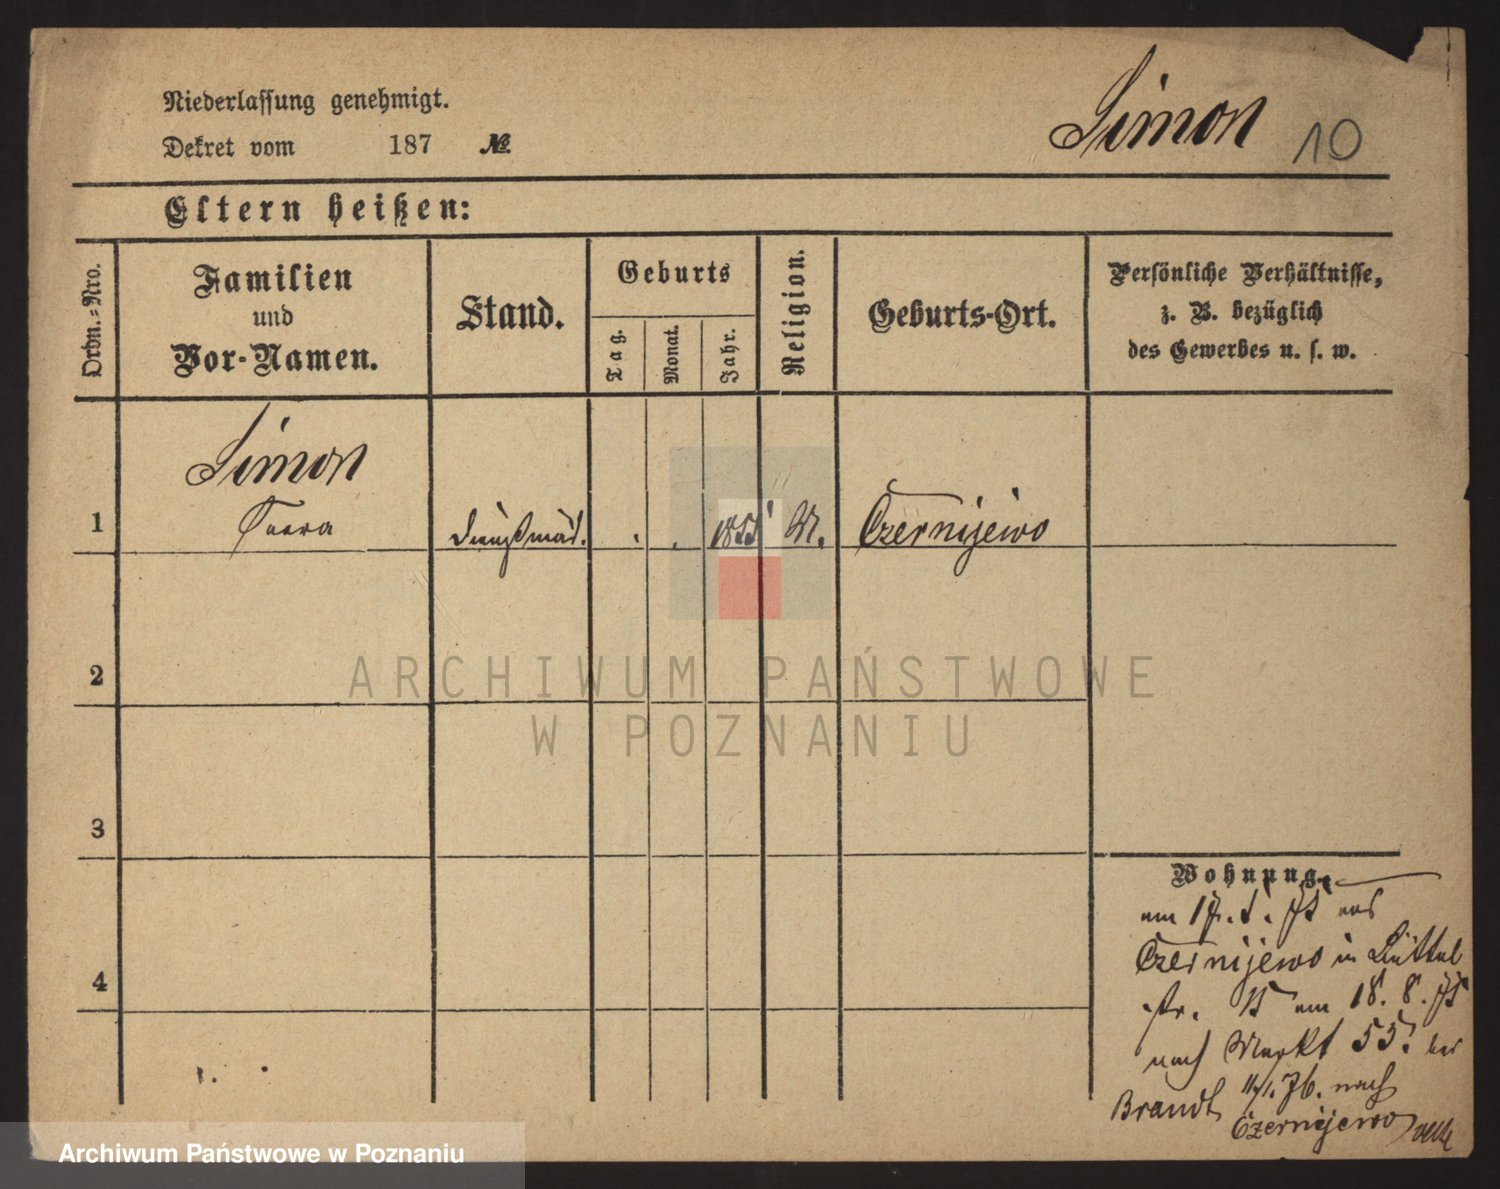 Niederlassung genehmigt.
Simon 10
Dekret vom 187 №
Eltern heißen:
Ordn.-Nro.
Familien
und
Vor-Namen.
Stand.
Geburts
Tag.
Monat.
Jahr.
Religion.
Geburts-Ort.
Persönliche Verhältnisse,
z. B. bezüglich
des Gewerbes u. s. w.
Simon
1 Dienstmäd. 1855 Czernijewo
2
3
4
ARCHIWUM PAŃSTWOWE
W POZNANIU
Wohnung.
am 17. 75 aus
Czernijewo in Büttel
str. am 18. 8. 75
nach Markt 55. bei
Brandt 11/1. 76. nach
Czernijewo
Archiwum Państwowe w Poznaniu